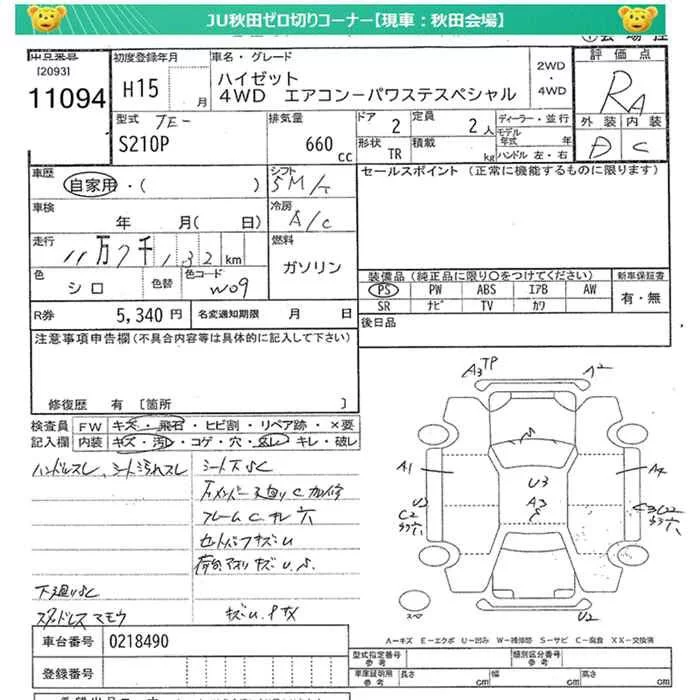 JU秋田ゼロ切りコーナー【現車：秋田会場】
出品番号
[2093]
11094
初度登録年月
H15
月
車名・グレード
ハイゼット
4WD エアコンーパワステスペシャル
2WD・4WD
評価点
RA
型式
TE-
S210P
排気量
660 cc
ドア
2
定員
2人
形状
TR
積載
kg
ディーラー・並行
モデル年式
年
ハンドル 左・右
外装
内装
D
C
車歴
自家用・( )
シフト
5M/T
車検
年 月( 日)
冷房
A/C
走行
11万7千132km
燃料
ガソリン
色
シロ
色替
色コード
W09
R券
5,340円
名変通知期限
月 日
セールスポイント (正常に機能するものに限ります)
装備品(純正品に限り○をつけてください)
新車保証書
PS PW ABS エアB AW
有・無
SR ナビ TV カワ
後日品
注意事項申告欄(不具合内容等は具体的に記入して下さい)
修復歴 有 [箇所 ]
検査員
FW
キズ・飛石・ヒビ割・リペア跡・×要
記入欄
内装
キズ・汚れ・コゲ・穴・スレ・キレ・破レ
ハンドルスレ、シート汚れスレ
シート下SC
フレームC
穴
キズU
下廻りSC
スタッドレスマモウ
A3 TP
A2
A1
U3
A3
A4
U3
C2
C3U2
穴
スペア
U2
A－キズ E－エクボ U－凹み W－補修跡 S－サビ C－腐食 XX－交換済
車台番号
0218490
登録番号
型式指定番号
参考
類別区分番号
参考
車庫証明用
参考
長さ cm
幅 cm
高さ cm